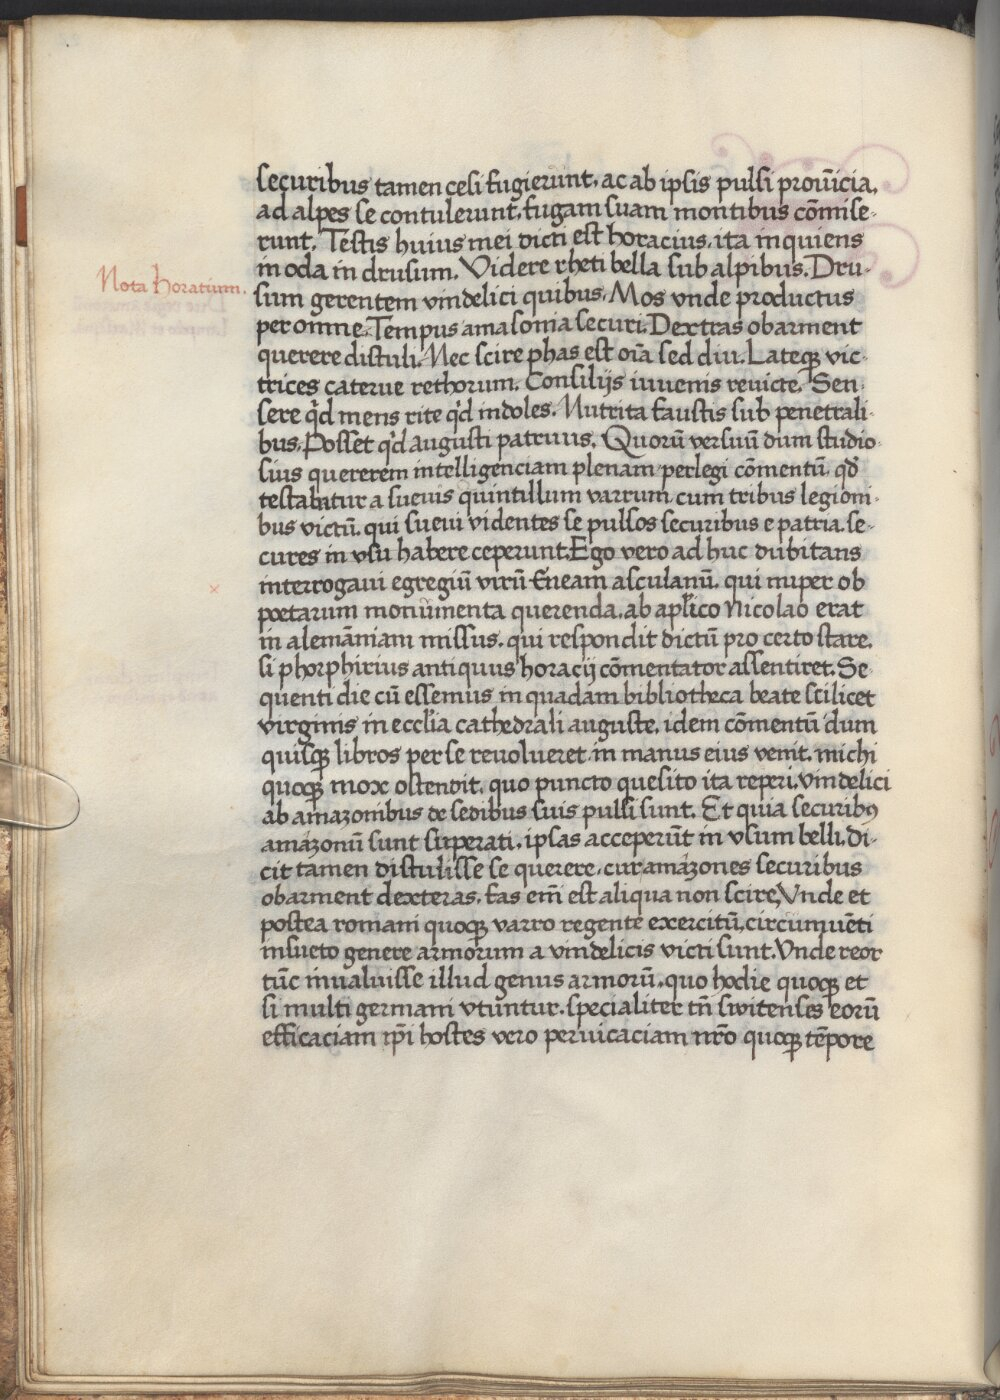 securibus tamen cesi fugierunt, ac ab ipsis pulsi prouīcia,
ad alpes se contulerunt, fugam suam montibus cōmise-
runt. Testis huius mei dicti est horacius, ita inquiens
in oda in drusum. Videre rheti bella sub alpibus. Dru-
Nota Horatium.
sum gerentem vindelici quibus. Mos vnde productus
per omne. Tempus amasonia securi. Dextras obarment
querere distuli. Nec scire phas est oīa sed diu. Lateqꝫ vic-
trices caterue rethorum. Consilijs iuuenis reuicte. Sen-
sere qd mens rite qd indoles. Nutrita faustis sub penetrali-
bus. Posset qd augusti patruus. Quorū versuū dum studio-
sius quererem intelligenciam plenam perlegi cōmentū, qd
testabatur a sueuis quintillum varrum cum tribus legioni-
bus victū. qui sueui videntes se pulsos securibus e patria. se-
cures in vsu habere ceperunt. Ego vero ad huc dubitans
interrogaui egregiū virū Eneam asculanū. qui nuper ob
poetarum monumenta querenda. ab aplico Nicolao erat
in alemāniam missus. qui respondit dictū pro certo stare.
si phorphirius antiquus horacij cōmentator assentiret. Se-
quenti die cū essemus in quadam bibliotheca beate scilicet
virginis in ecclia cathedrali auguste. idem cōmentū dum
quisqꝫ libros per se reuolueret in manus eius venit. michi
quoqꝫ mox ostendit. quo puncto quesito ita reperi. vindelici
ab amazonibus de sedibus suis pulsi sunt. Et quia securibꝰ
amazonū sunt superati. ipsas acceperūt in vsum belli. di-
cit tamen distulisse se querere. cur amazones securibus
obarment dexteras. fas em̄ est aliqua non scire. Vnde et
postea romani quoqꝫ varro regente exercitū, circumuēti
insueto genere armorum a vindelicis victi sunt. Vnde reor
tūc inualuisse illud genus armorū. quo hodie quoqꝫ et
si multi germani vtuntur. specialiter tn̄ switenses eorū
efficaciam ip̄i hostes vero peruicaciam nr̄o quoqꝫ tēpore